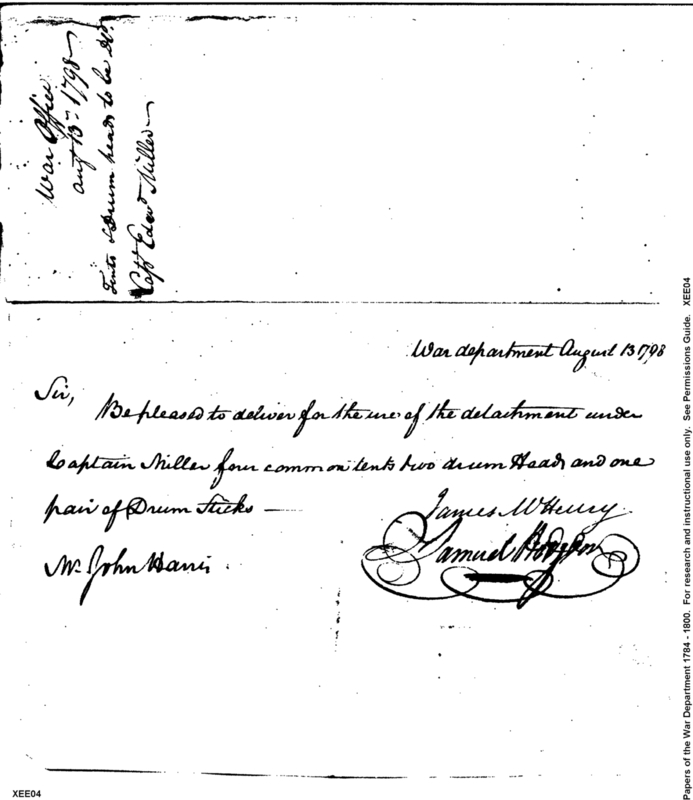 War Office
Augt 13th 1798
Tents & Drum heads to be dd.
Capt Edwd Miller
War department August 13 1798
Sir,
Be pleased to deliver for the use of the detachment under
Captain Miller four common tents two drum Heads and one
pair of Drum Sticks
James McHenry
Samuel Hodgdon
Mr John Harris
Papers of the War Department 1784 - 1800. For research and instructional use only. See Permissions Guide. XEE04
XEE04